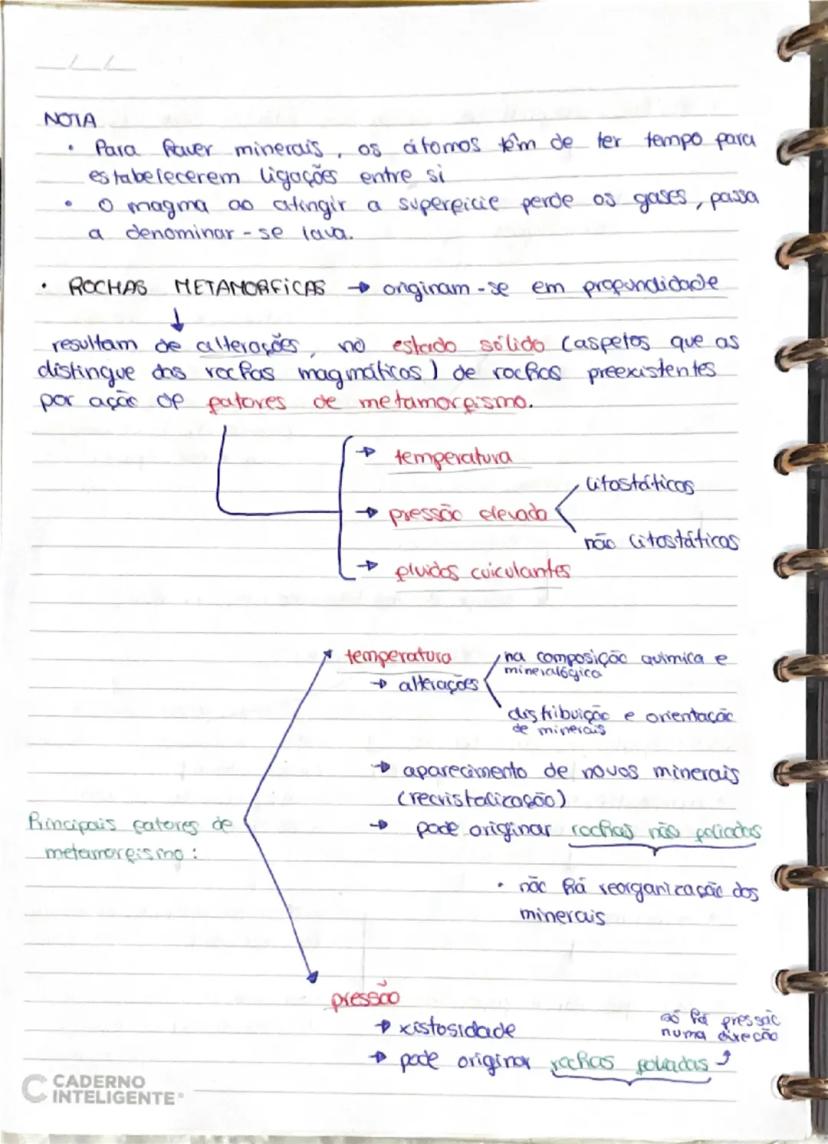 NOTA
• Para haver minerais, os átomos têm de ter tempo para
estabelecerem ligações entre si
• O magma ao atingir a superfície perde os gases, passa
a denominar-se lava.
• ROCHAS METAMÓRFICAS → originam-se em profundidade
resultam de alterações, no estado sólido (aspetos que as
distingue das rochas magmáticas) de rochas preexistentes
por ação de fatores de metamorfismo.
→ temperatura
→ pressão elevada
litostáticos
não litostáticos
→ fluidos cuiculantes
Principais fatores de
metamorfismo:
temperatura
→ alterações
na composição química e
mineralógica
distribuição e orientação
de minerais
→ aparecimento de novos minerais
(recristalização)
→ pode originar rochas não foliadas
• não há reorganização dos
minerais
pressão
→ xistosidade
→ pode originar rochas foliadas
só há pressão
numa direção
CADERNO
INTELIGENTE®